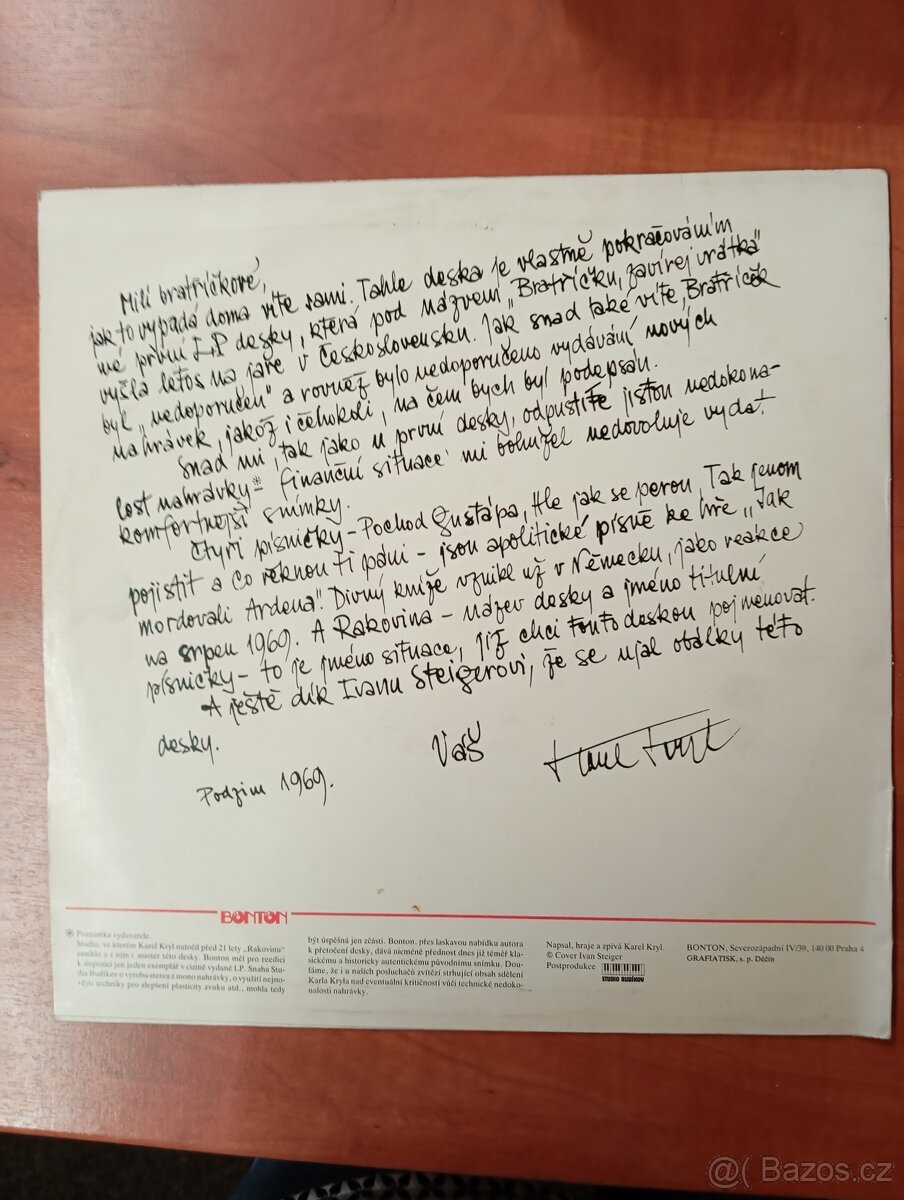 Milí bratříčkové,
jak to vypadá doma víte sami. Tahle deska je vlastně pokračováním
mé první LP desky, která pod názvem „Bratříčku, zavírej vrátka"
vyšla letos na jaře v Československu. Jak snad také víte, Bratříček
byl „nedoporučen" a rovněž bylo nedoporučeno vydávání nových
nahrávek, jakož i čehokoli, na čem bych byl podepsán.
Snad mi, tak jako u první desky, odpustíte jistou nedokona-
lost nahrávky* - finanční situace mi bohužel nedovoluje vydat
komfortnější snímky.
Čtyři písničky - Pochod Gustapa, Hle jak se perou, Tak jenom
pojistit a Co řeknou ti páni - jsou apolitické písně ke hře „Jak
mordovali Ardena". Divný kníže vznikl už v Německu, jako reakce
na srpen 1969. A Rakovina - název desky a jméno titulní
písničky - to je jméno situace, již chci touto deskou pojmenovat.
A ještě dík Ivanu Steigerovi, že se ujal obálky této
desky.
Váš Karel Kryl
Podzim 1969.
BONTON
* Poznámka vydavatele.
Studio, ve kterém Karel Kryl natočil před 21 lety „Rakovinu"
zaniklo a s ním i master této desky. Bonton měl pro reedici
k dispozici jen jeden exemplář v cizině vydané LP. Snaha Stu-
dia Budíkov o výrobu stereo z mono nahrávky, o využití nejno-
vější techniky pro zlepšení plasticity zvuku atd., mohla tedy
být úspěšná jen zčásti. Bonton, přes laskavou nabídku autora
k přetočení desky, dává nicméně přednost dnes již téměř kla-
sickému a historicky autentickému původnímu snímku. Dou-
fáme, že i u našich posluchačů zvítězí strhující obsah sdělení
Karla Kryla nad eventuální kritičností vůči technické nedoko-
nalosti nahrávky.
Napsal, hraje a zpívá Karel Kryl.
© Cover Ivan Steiger
Postprodukce
STUDIO BUDÍKOV
BONTON, Severozápadní IV/39, 140 00 Praha 4
GRAFIATISK, s. p. Děčín
@( Bazos.cz